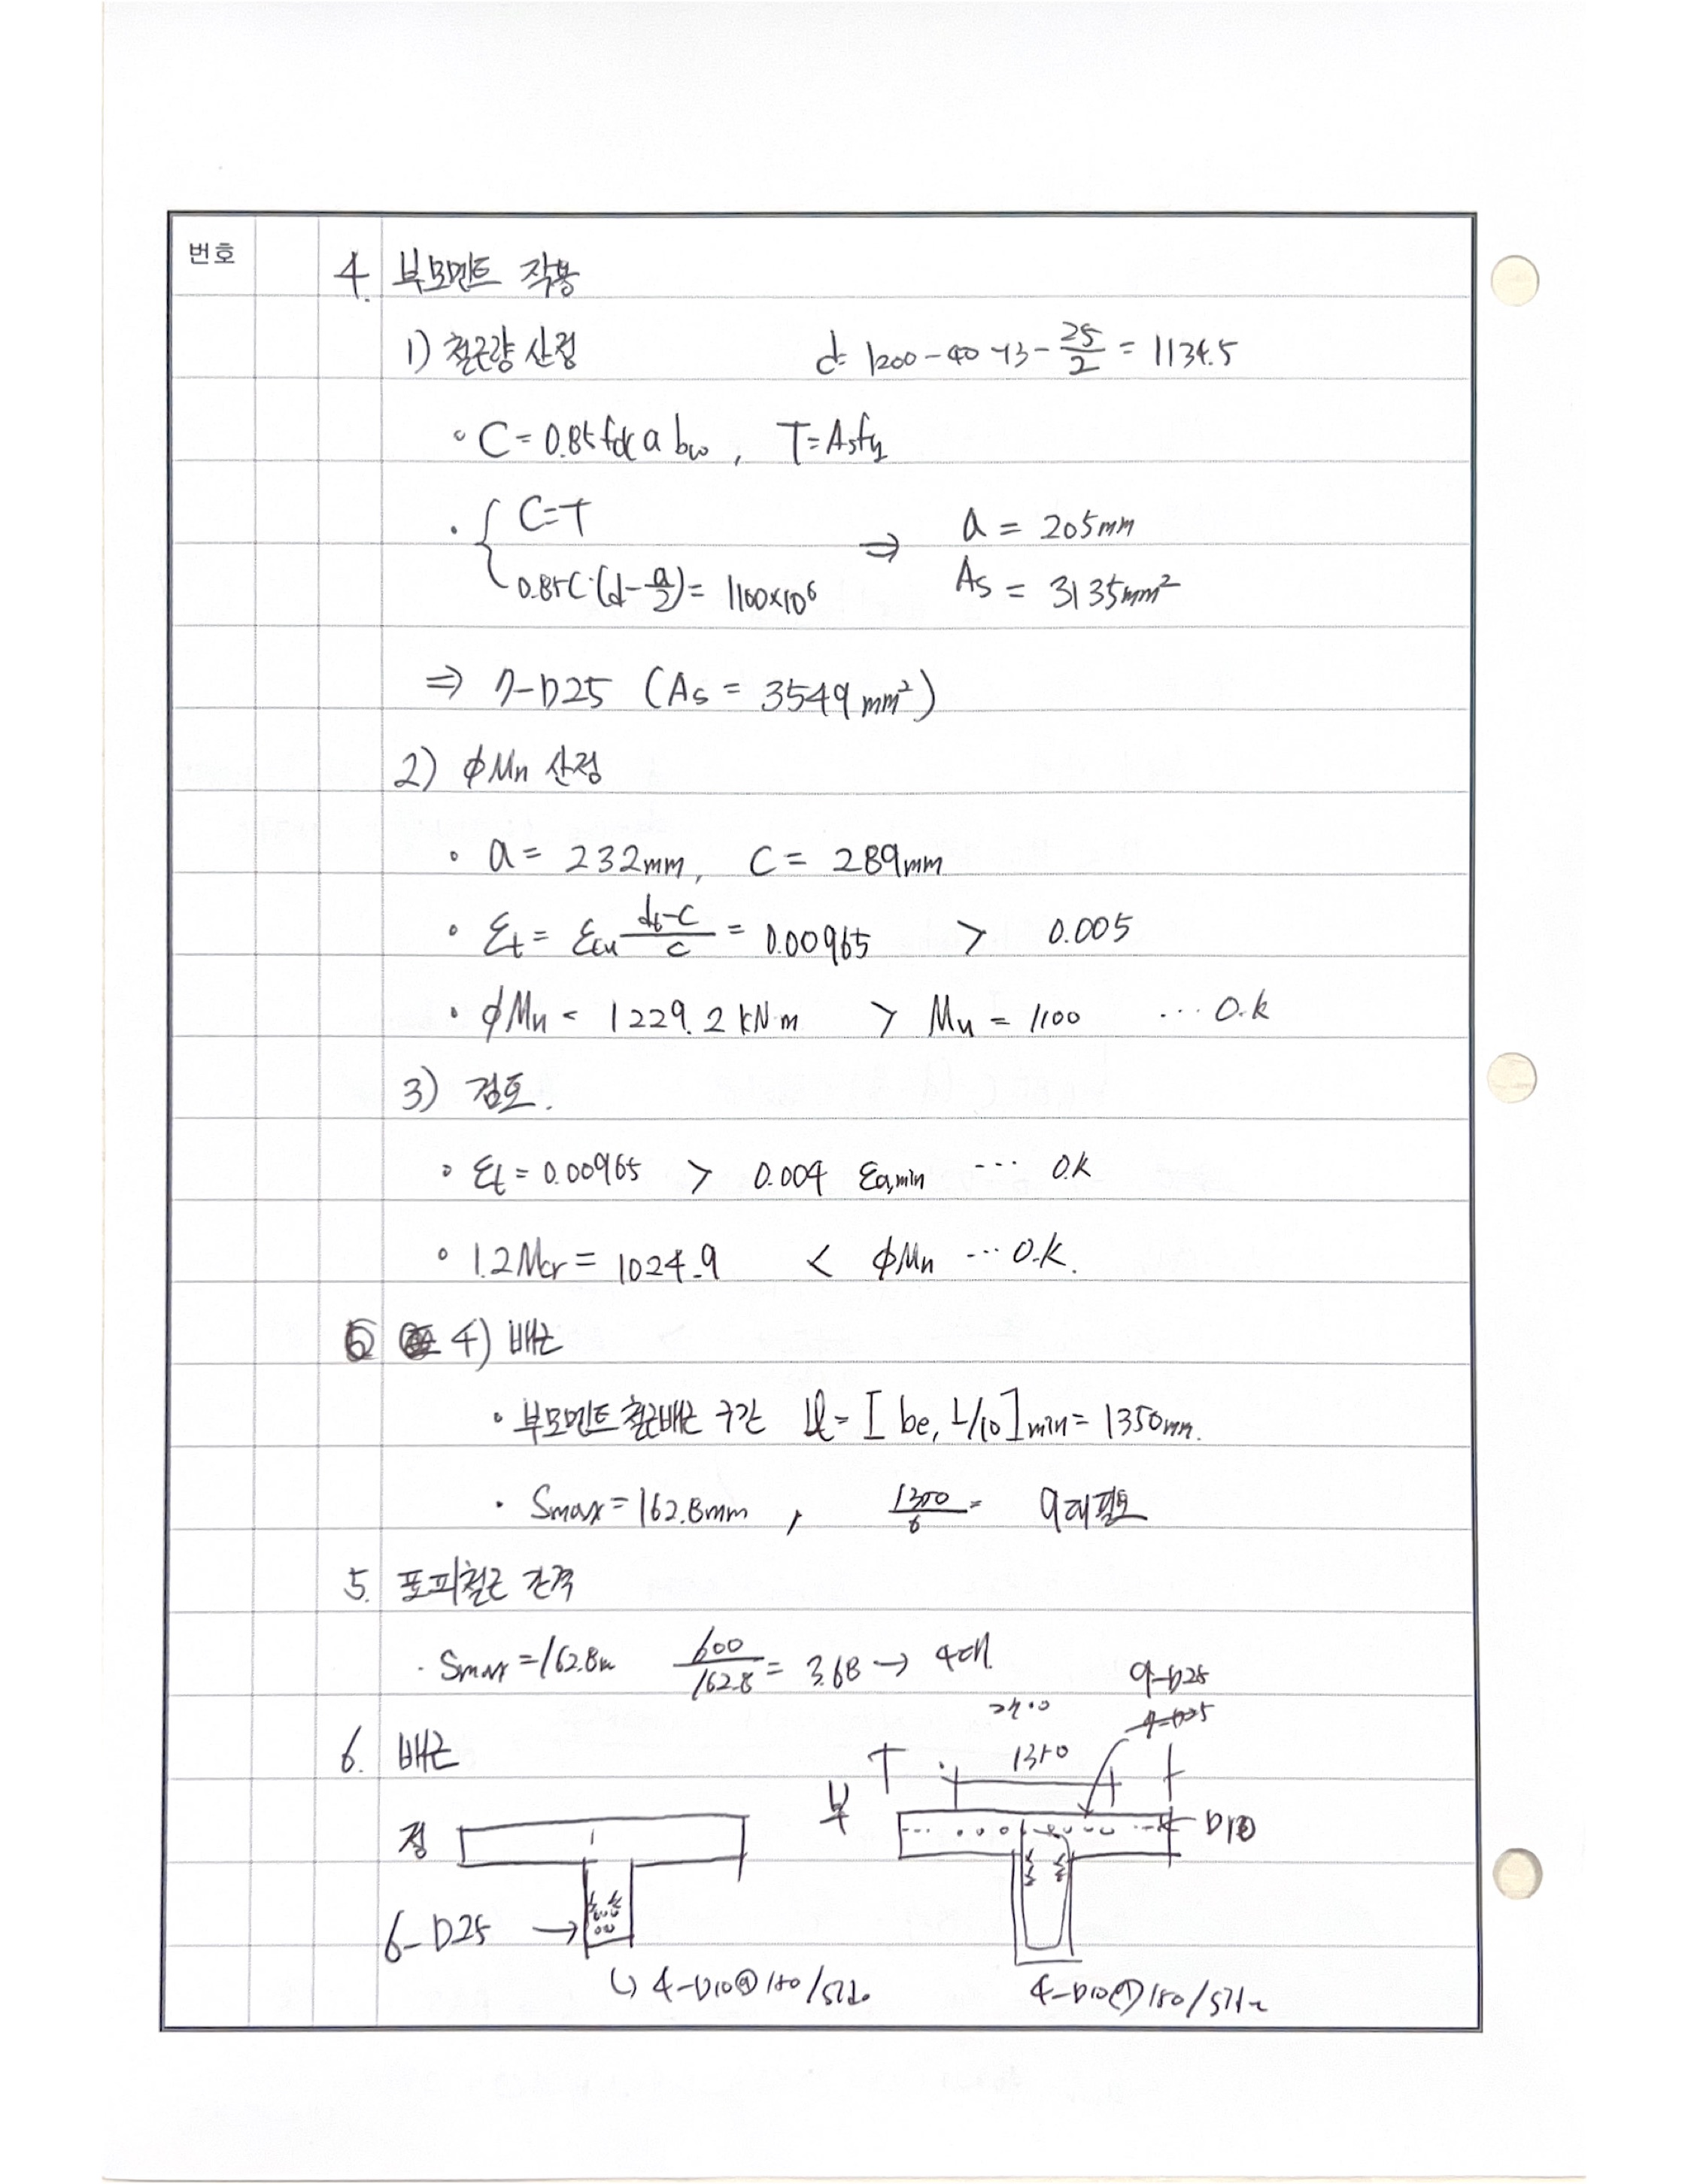 번호
4. 부모멘트 작용
1) 철근량 산정 d= 1200-40-13-25/2 = 1134.5
∘ C = 0.85fck a bw, T=Asfy
· { C=T ⇒ a = 205mm
0.85C·(d-a/2)= 1100×10⁶ As = 3135mm²
⇒ 7-D25 (As = 3549mm²)
2) ϕMn 산정
∘ a = 232mm, C = 289mm
∘ εt = εcu (dt-c)/c = 0.00965 > 0.005
· ϕMn = 1229.2 kN·m > Mu = 1100 ··· O.k
3) 검토.
∘ εt = 0.00965 > 0.004 εa,min ··· O.k
∘ 1.2Mcr = 1024.9 < ϕMn ··· O.K.
4) 배근
· 부모멘트 철근배근 구간 = [be, L/10]min = 1350mm.
· Smax = 162.8mm, 1350/6 = 9대필요
5. 표피철근 간격
· Smax = 162.8m 600/162.8 = 3.68 → 4대
9-D25
6. 배근 1350
부
정 D10
6-D25 →
4-D10@150/side
4-D10@150/side